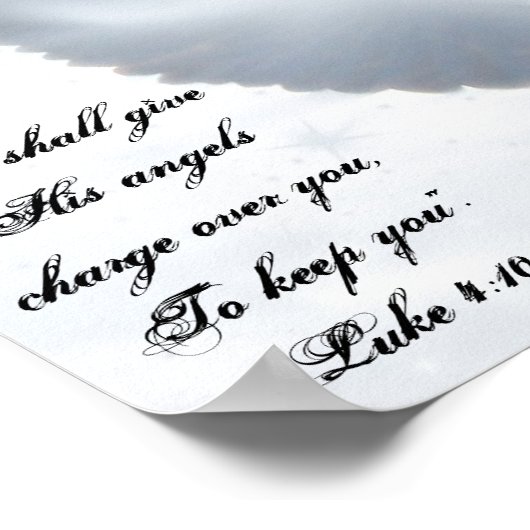 shall give
His angels
charge over you,
To keep you".
Luke 4:10